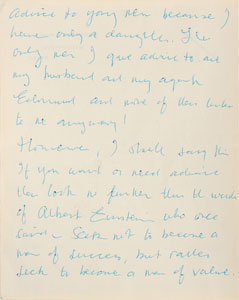 advice to young men because I
have only a daughter. The
only men I give advice to are
my husband and my agent
Edmund and none of them listen
to me anyway!
However, I shall say this
If you want or need advice
then look no further than the words
of Albert Einstein who once
said: Seek not to become a
man of success, but rather
seek to become a man of value.